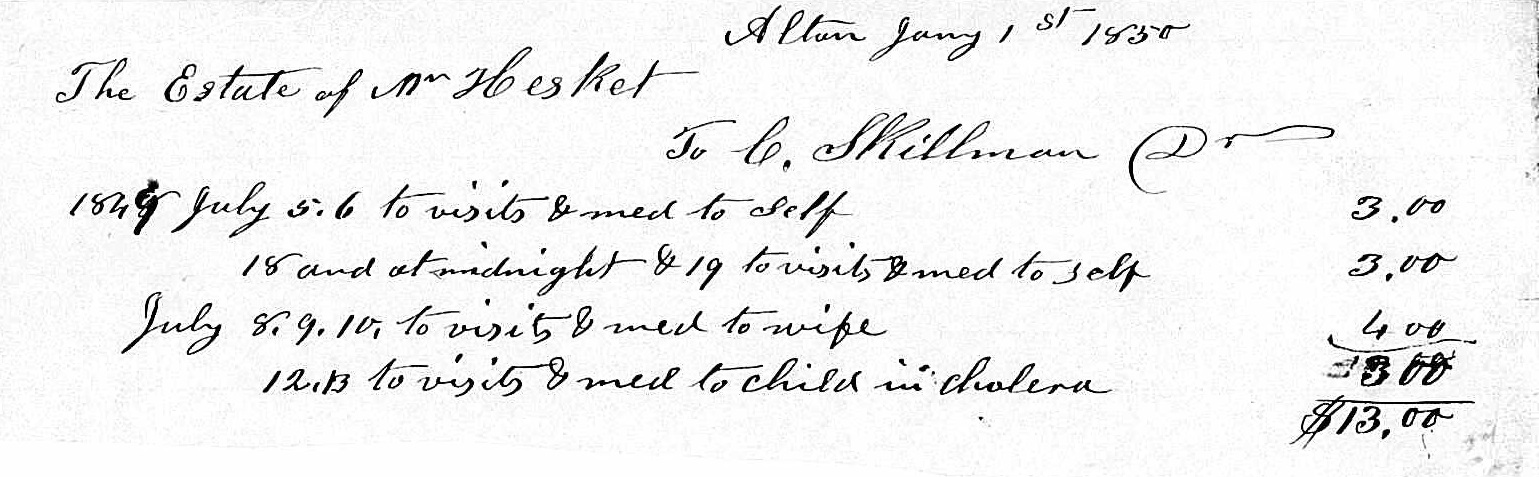 Alton Jany 1st 1850
The Estate of Mr Hesket
To C. Skillman Dr
1849 July 5.6 to visits & med to self 3.00
18 and at midnight & 19 to visits & med to self 3.00
July 8.9.10, to visits & med to wife 4 00
12.13 to visits & med to child in cholera 3 00
$13.00